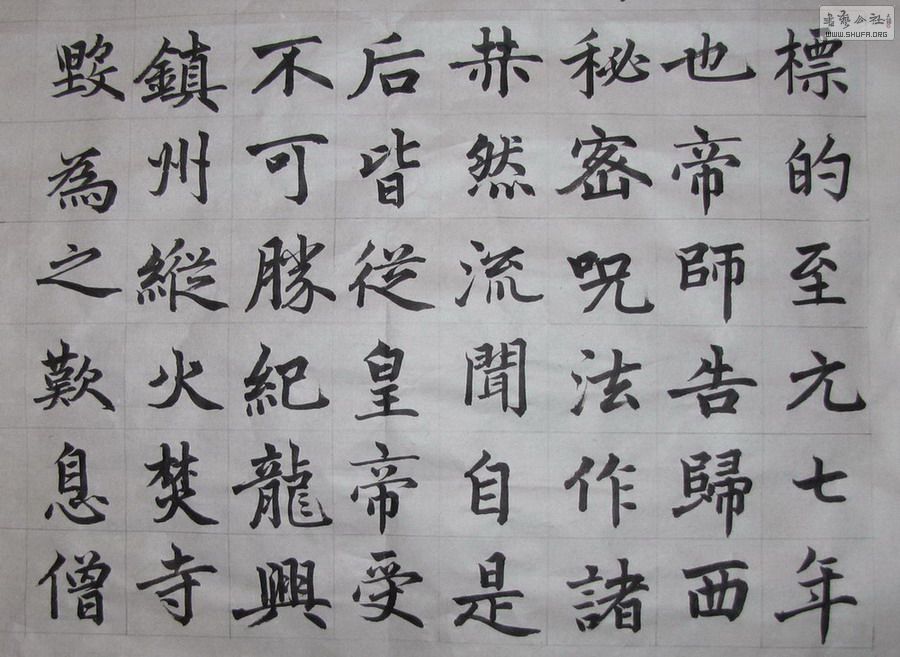 標的至元七年
也帝師告歸西
秘密呪法作諸
赫然流聞自是
后皆從皇帝受
不可勝紀龍興
鎮州縱火焚寺
毀為之歎息僧
書藝公社
WWW.SHUFA.ORG